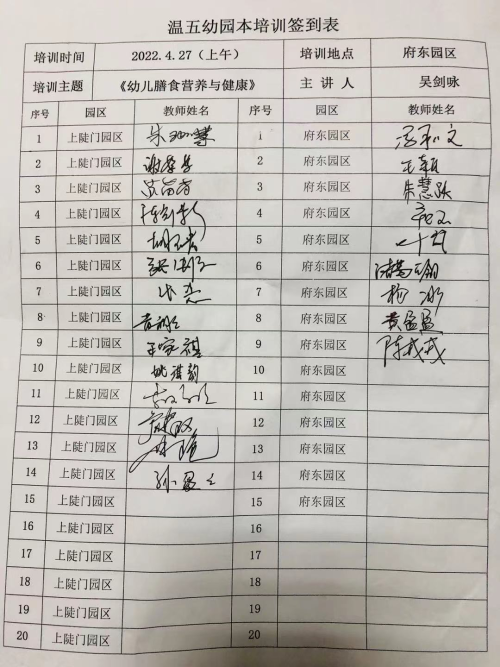 温五幼园本培训签到表
培训时间 2022.4.27（上午） 培训地点 府东园区
培训主题 《幼儿膳食营养与健康》 主 讲 人 吴剑咏
序号 园区 教师姓名 序号 园区 教师姓名
1 上陡门园区 1 府东园区
2 上陡门园区 2 府东园区
3 上陡门园区 3 府东园区 朱慧
4 上陡门园区 4 府东园区
5 上陡门园区 5 府东园区
6 上陡门园区 6 府东园区
7 上陡门园区 7 府东园区 杨冰
8 上陡门园区 8 府东园区 黄盈盈
9 上陡门园区 王家祺 9 府东园区 陈戎戎
10 上陡门园区 姚祺韵 10 府东园区
11 上陡门园区 11 府东园区
12 上陡门园区 12 府东园区
13 上陡门园区 13 府东园区
14 上陡门园区 孙盈 14 府东园区
15 上陡门园区 15 府东园区
16 上陡门园区 16
17 上陡门园区 17
18 上陡门园区 18
19 上陡门园区 19
20 上陡门园区 20